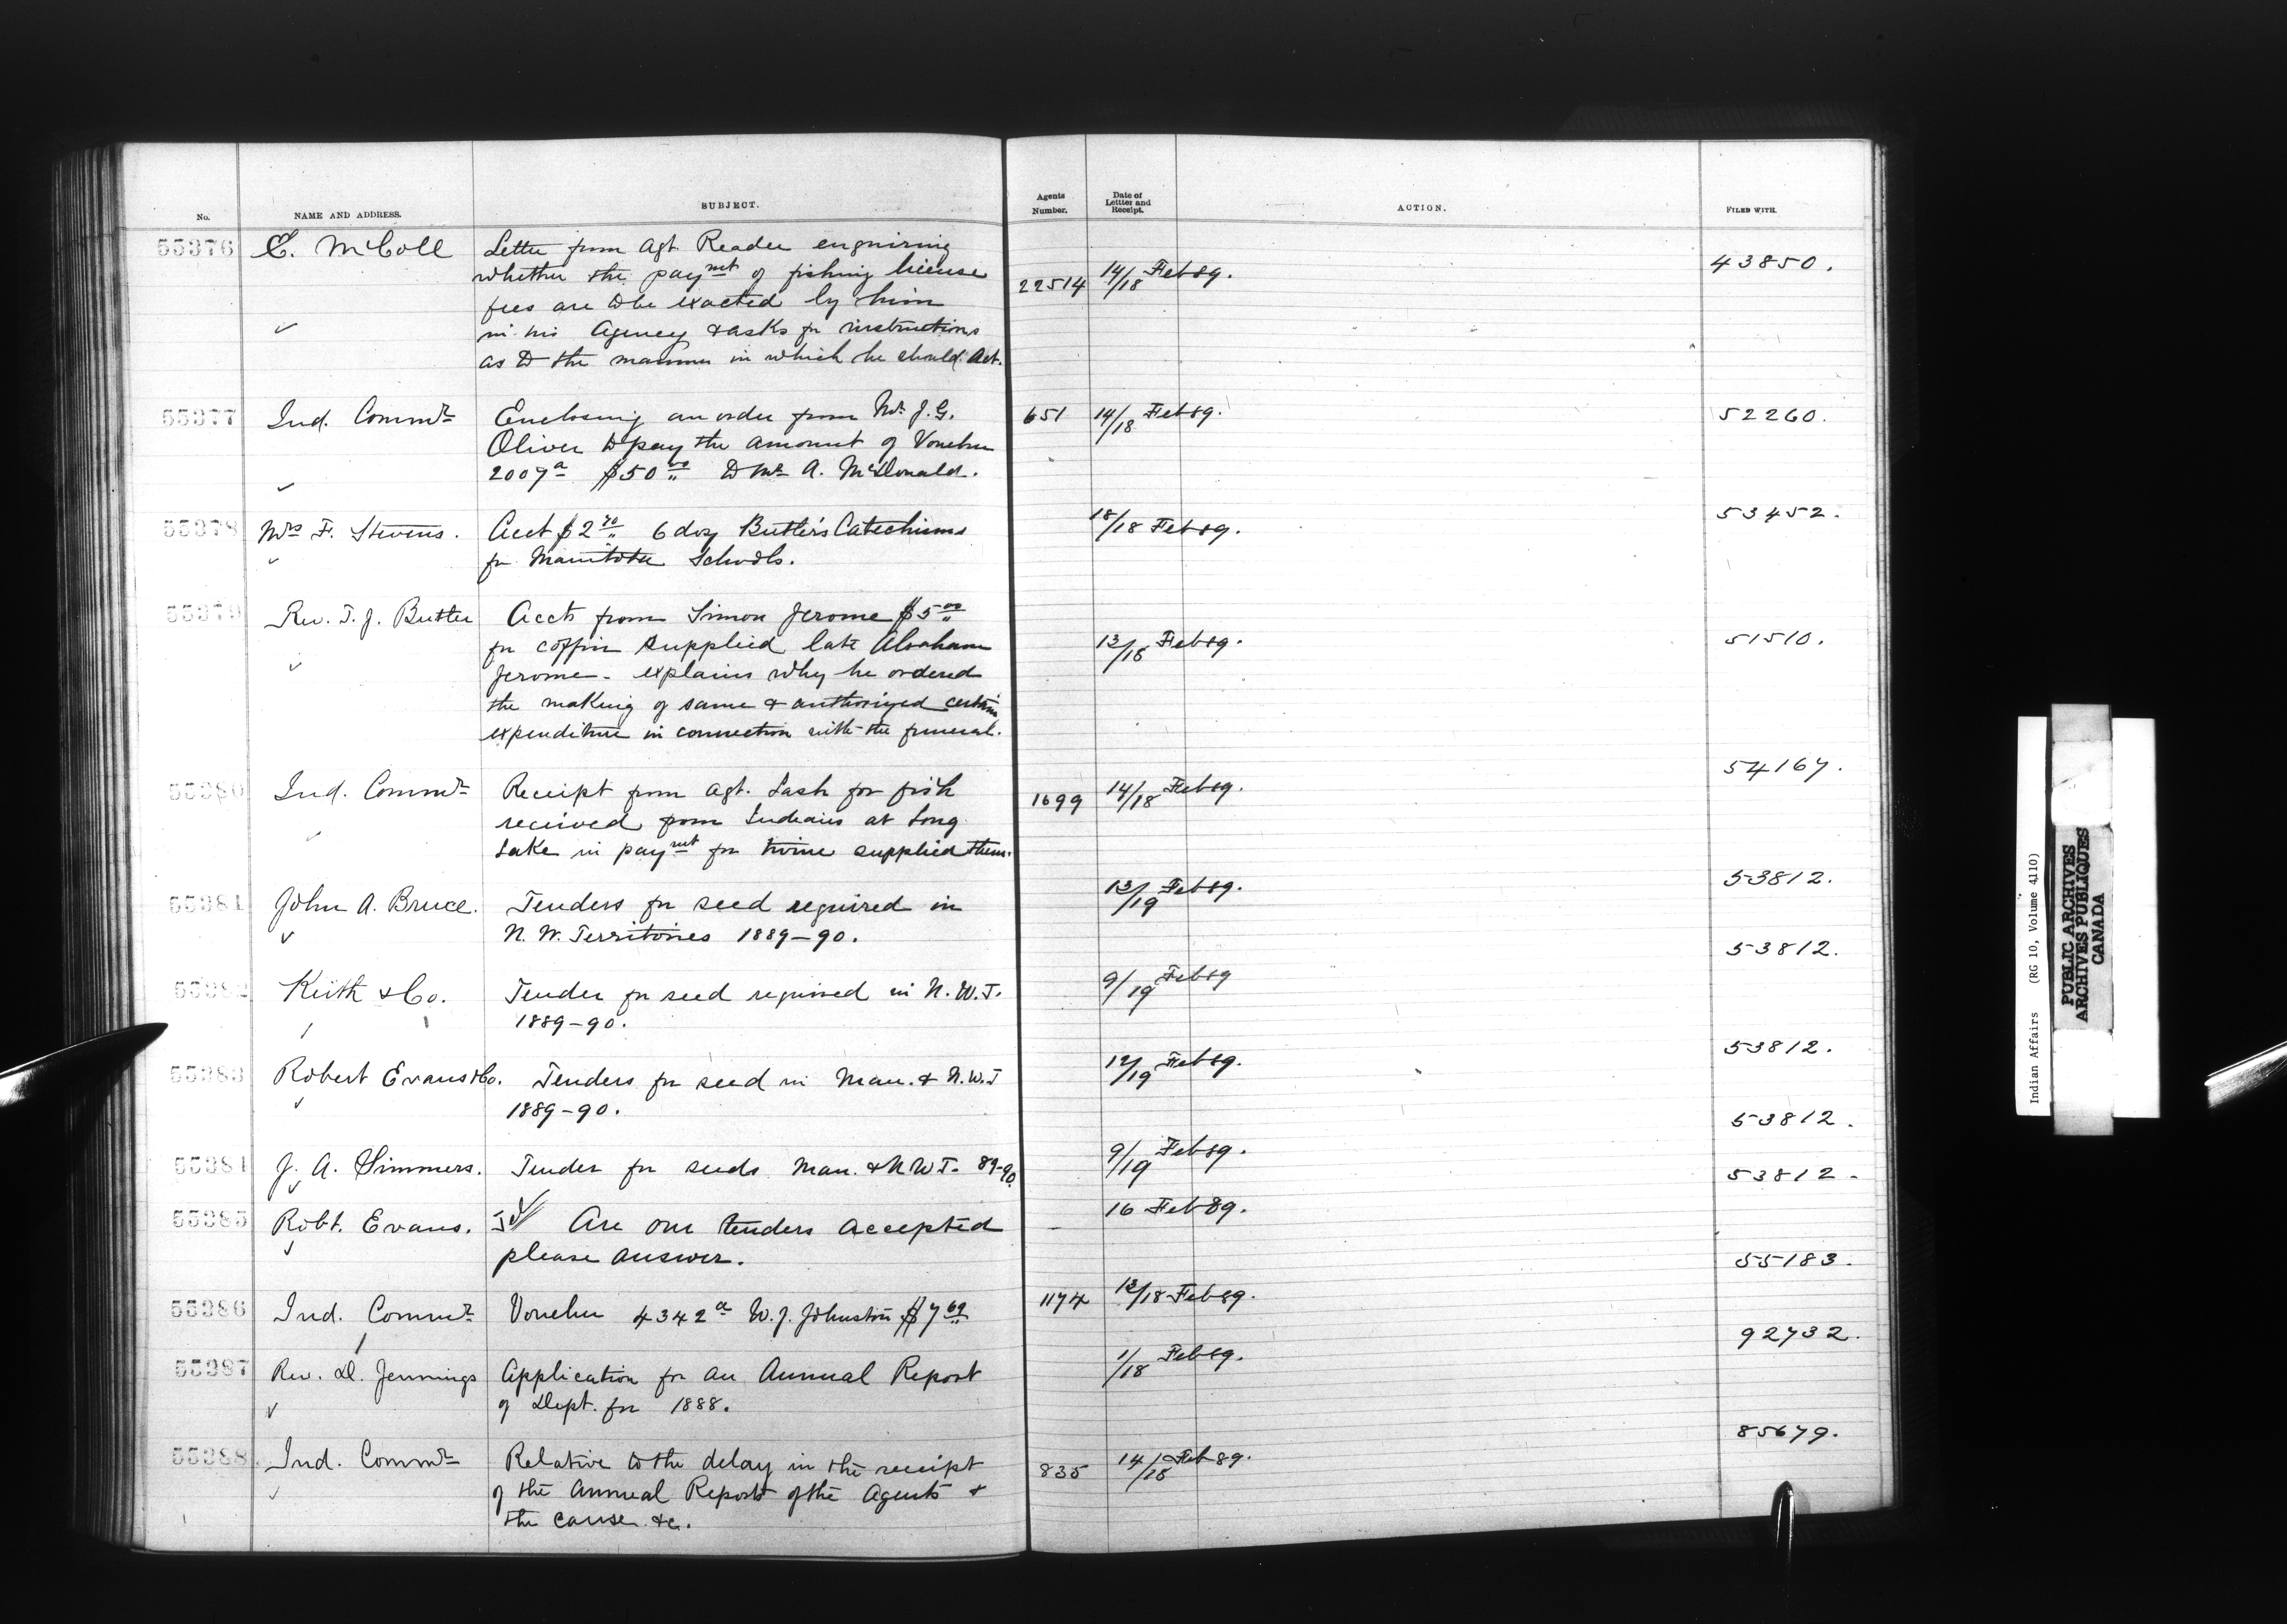 No. NAME AND ADDRESS. SUBJECT. Agents Number. Date of Letter and Receipt. ACTION. FILED WITH.
55376 E. McColl Letter from Agt. Reader enquiring
whether the paymt of fishing license 22514 14/18 Feb 89. 43850.
fees are to be exacted by him
in his Agency & asks for instructions
as to the manner in which he should act.
55377 Ind. Commr Enclosing an order from Mr J. G. 651 14/18 Feb 89. 52260.
Oliver to pay the amount of Voucher
2007a $50.00 to Mr A. McDonald.
55378 Mrs F. Stevens. Acct $2.70 6 doz Butler's Catechisms 18/18 Feb 89. 53452.
for Manitoba Schools.
55379 Rev. T. J. Butler Accts from Simon Jerome $5.00
for coffin supplied late Abraham 13/18 Feb 89. 51510.
Jerome - explains why he ordered
the making of same & authorized certain
expenditure in connection with the funeral.
55380 Ind. Commr Receipt from Agt. Lash for fish 1699 14/18 Feb 89. 54167.
received from Indians at Long
Lake in paymt for twine supplied them.
55381 John A. Bruce. Tenders for seed required in 13/19 Feb 89. 53812.
N. W. Territories 1889-90.
55382 Keith & Co. Tender for seed required in N. W. T. 9/19 Feb 89 53812.
1889-90.
55383 Robert Evans & Co. Tenders for seed in Man. & N. W. T 12/19 Feb 89. 53812.
1889-90.
55384 J. A. Simmers. Tender for seeds Man. & N W T. 89-90. 9/19 Feb 89. 53812.
55385 Robt. Evans. Are our tenders accepted 16 Feb 89. 53812.
please answer.
55386 Ind. Commr Voucher 4342a W. J. Johnston $7.69 1174 13/18 Feb 89. 55183.
55387 Rev. D. Jennings Application for an Annual Report 1/18 Feb 89. 92732.
of Dept. for 1888.
55388 Ind. Commr Relative to the delay in the receipt 835 14/18 Feb 89. 85679.
of the Annual Reports of the Agents &
the cause &c.
Indian Affairs (RG 10, Volume 4110)
PUBLIC ARCHIVES
ARCHIVES PUBLIQUES
CANADA